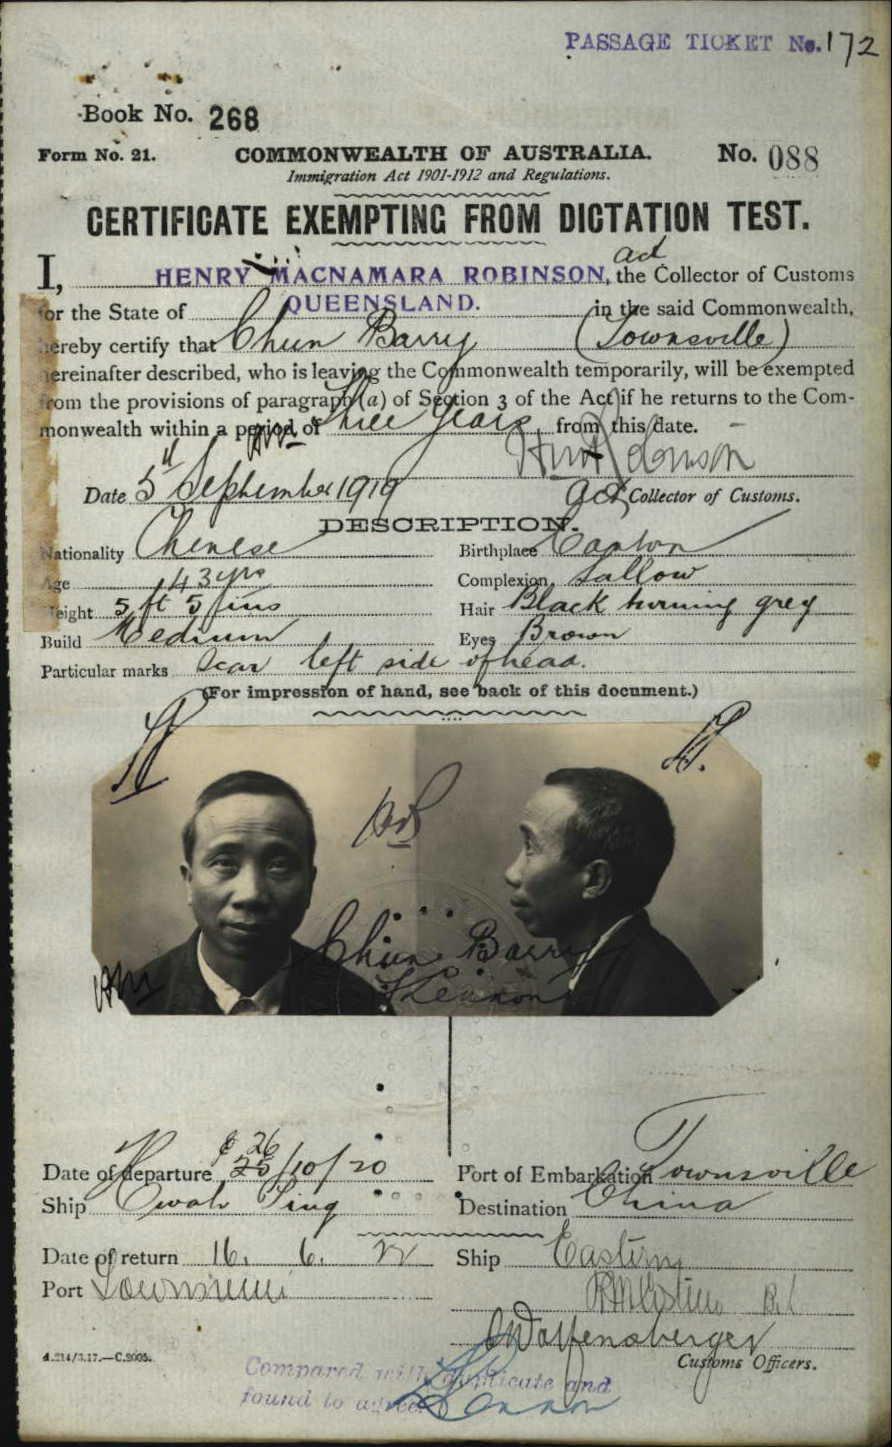 PASSAGE TICKET No. 172
Book No. 268
Form No. 21. COMMONWEALTH OF AUSTRALIA. No. 088
Immigration Act 1901-1912 and Regulations.
CERTIFICATE EXEMPTING FROM DICTATION TEST.
act
I, HENRY MACNAMARA ROBINSON, the Collector of Customs
for the State of QUEENSLAND. in the said Commonwealth,
hereby certify that Chun Barry (Townsville)
hereinafter described, who is leaving the Commonwealth temporarily, will be exempted
from the provisions of paragraph (a) of Section 3 of the Act if he returns to the Com-
monwealth within a period of Three Years from this date.
Date 5th September 1919 act Collector of Customs.
DESCRIPTION.
Nationality Chinese Birthplace Canton
Age 43 yrs Complexion Sallow
Height 5 ft 5 ins Hair Black turning grey
Build Medium Eyes Brown
Particular marks Scar left side of head.
(For impression of hand, see back of this document.)
Chun Barry
Date of departure 26/10/20 Port of Embarkation Townsville
Ship Hwah Ping Destination China
Date of return 16. 6. 22 Ship Eastern
Port Townsville
Customs Officers.
A.214/3.17.—C.2005.
Compared with duplicate and
found to agree